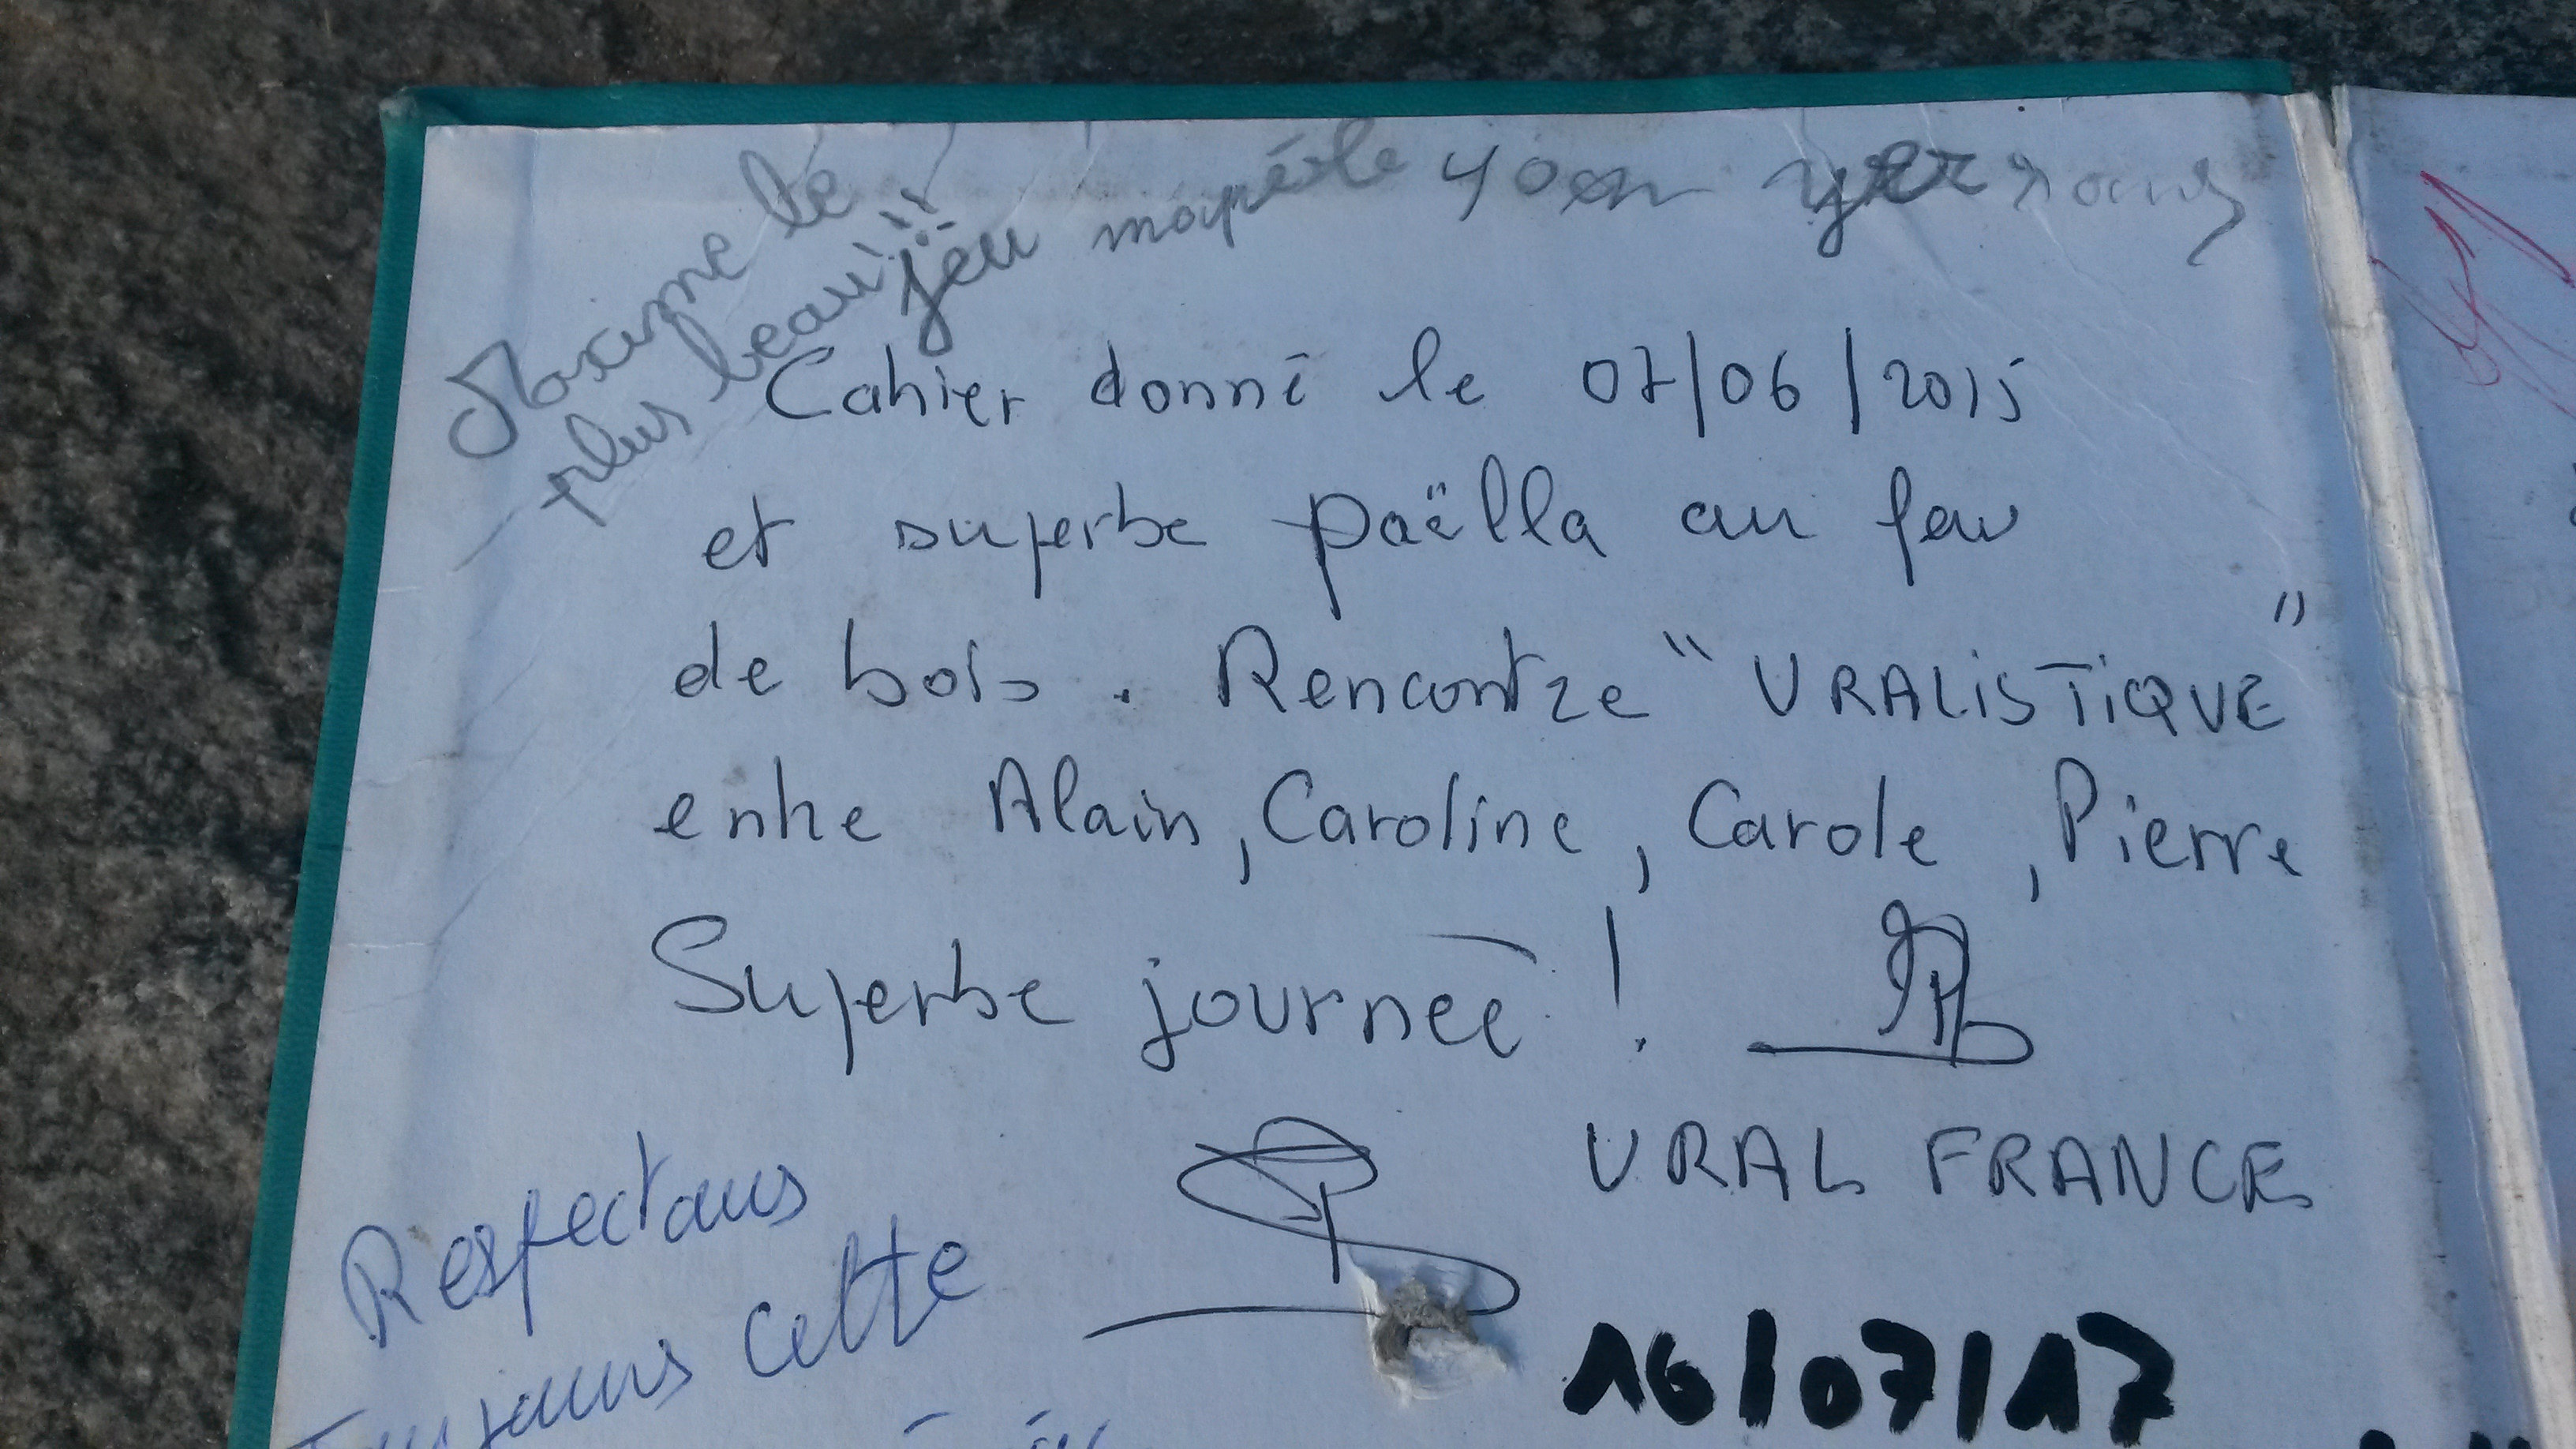 Maxime le
plus beau !!
jeu
Cahier donné le 07/06/2015
et superbe paëlla au feu
de bois. Rencontre "URALiSTiQUE"
entre Alain, Caroline, Carole, Pierre
Superbe journée !
URAL FRANCE
Respectons
Toujours cette
16/07/17